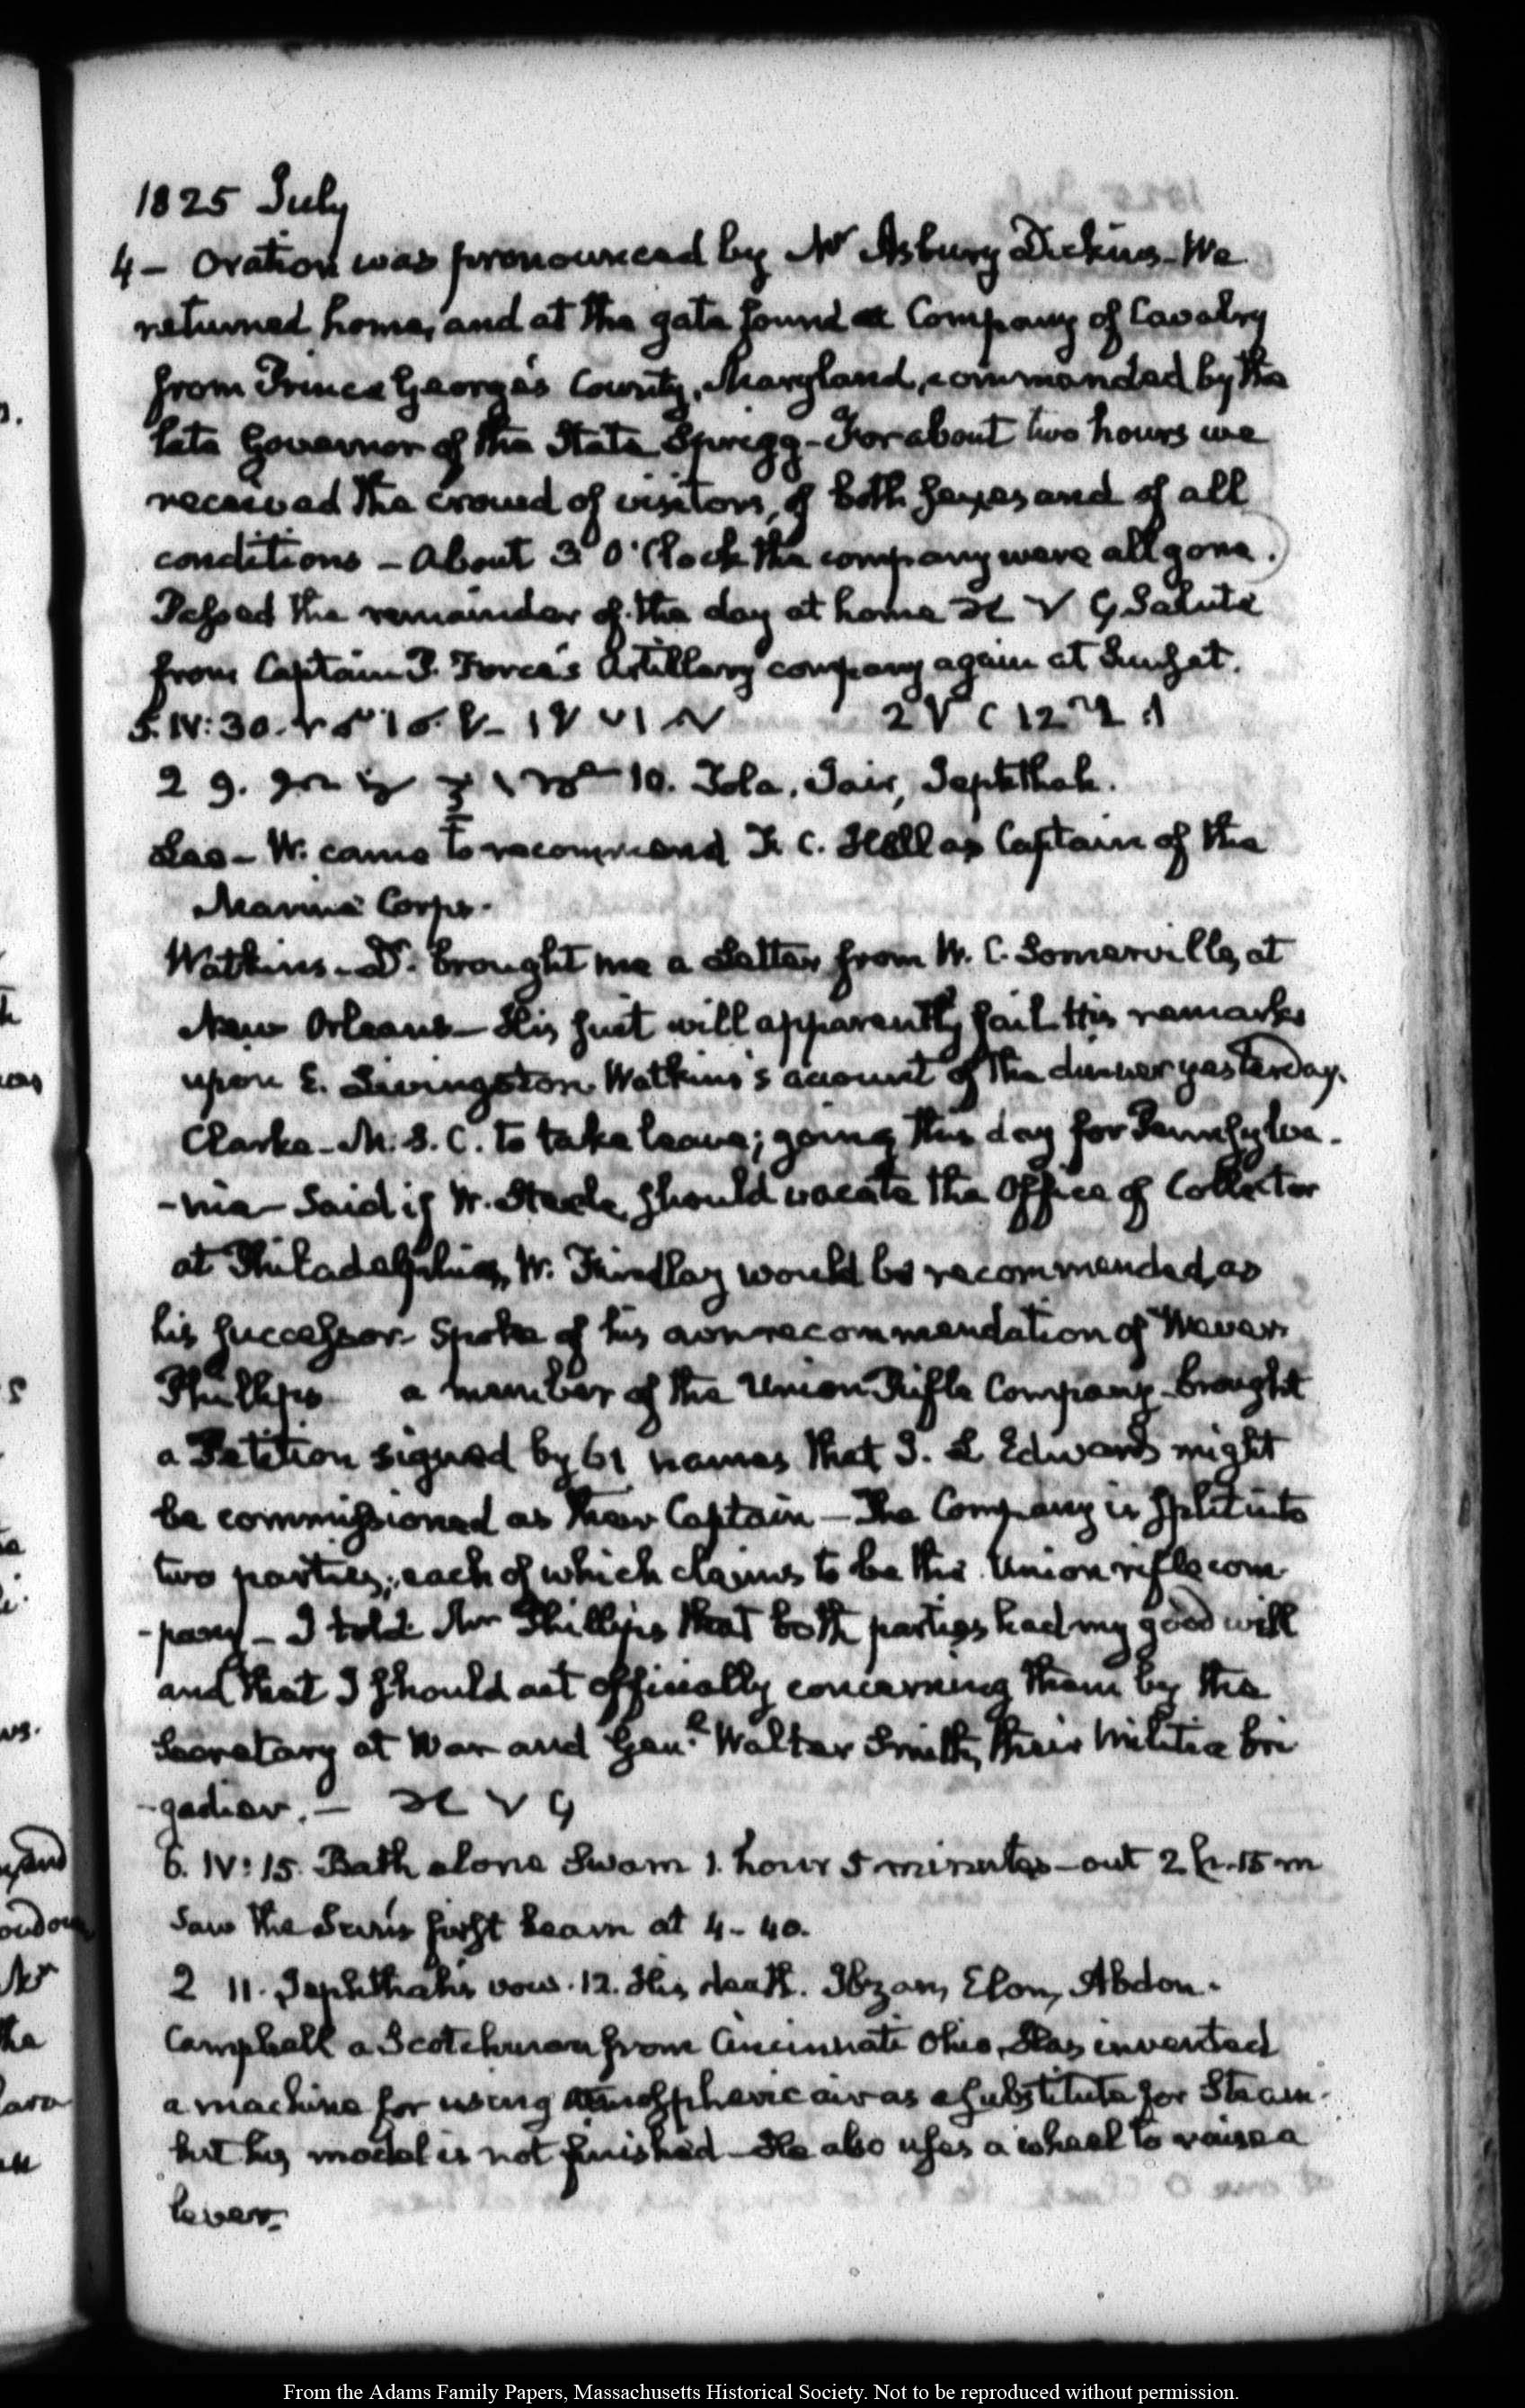 1825 July
4 – Oration was pronounced by Mr Asbury Dickins – We
returned home, and at the gate found a Company of Cavalry
from Prince George's County, Maryland, commanded by the
late Governor of the State Sprigg – For about two hours we
received the crowd of visitors, of both sexes and of all
conditions – About 3 O'Clock the company were all gone.
Passed the remainder of the day at home Salute
from Captain P. Force's Artillery company again at Sunset.
5. IV: 30.
2 9. 10. Tola, Jair, Jephthah.
Lee – W. came to recommend F. C. Hall as Captain of the
Marine Corps.
Watkins – D. brought me a Letter from W. C. Somerville, at
New Orleans – His suit will apparently fail His remarks
upon E. Livingston Watkins's account of the dinner yesterday.
Clarke – M. S. C. to take leave; going this day for Pennsylva-
-nia – Said if W. Steele should vacate the Office of Collector
at Philadelphia, W. Findlay would be recommended as
his successor Spoke of his own recommendation of Wever
Phillips a member of the Union Rifle Company – brought
a Petition signed by 61 names that J. L Edwards might
be commissioned as their Captain – The Company is split into
two parties; each of which claims to be the Union rifle com
-pany – I told Mr Phillips that both parties had my good will
and that I should act officially concerning them by the
Secretary at War and Genl. Walter Smith, their Militia bri
-gadier. –
6. IV: 15. Bath alone Swam 1. hour 5 minutes – out 2 h. 15 m
Saw the Sun's first beam at 4 – 40.
2 11. Jephthah's vow. 12. His death. Ibzan, Elon, Abdon.
Campbell a Scotchman from Cincinnati Ohio, Has invented
a machine for using atmospheric air as a substitute for Steam.
but his model is not finished – He also uses a wheel to raise a
lever.
From the Adams Family Papers, Massachusetts Historical Society. Not to be reproduced without permission.